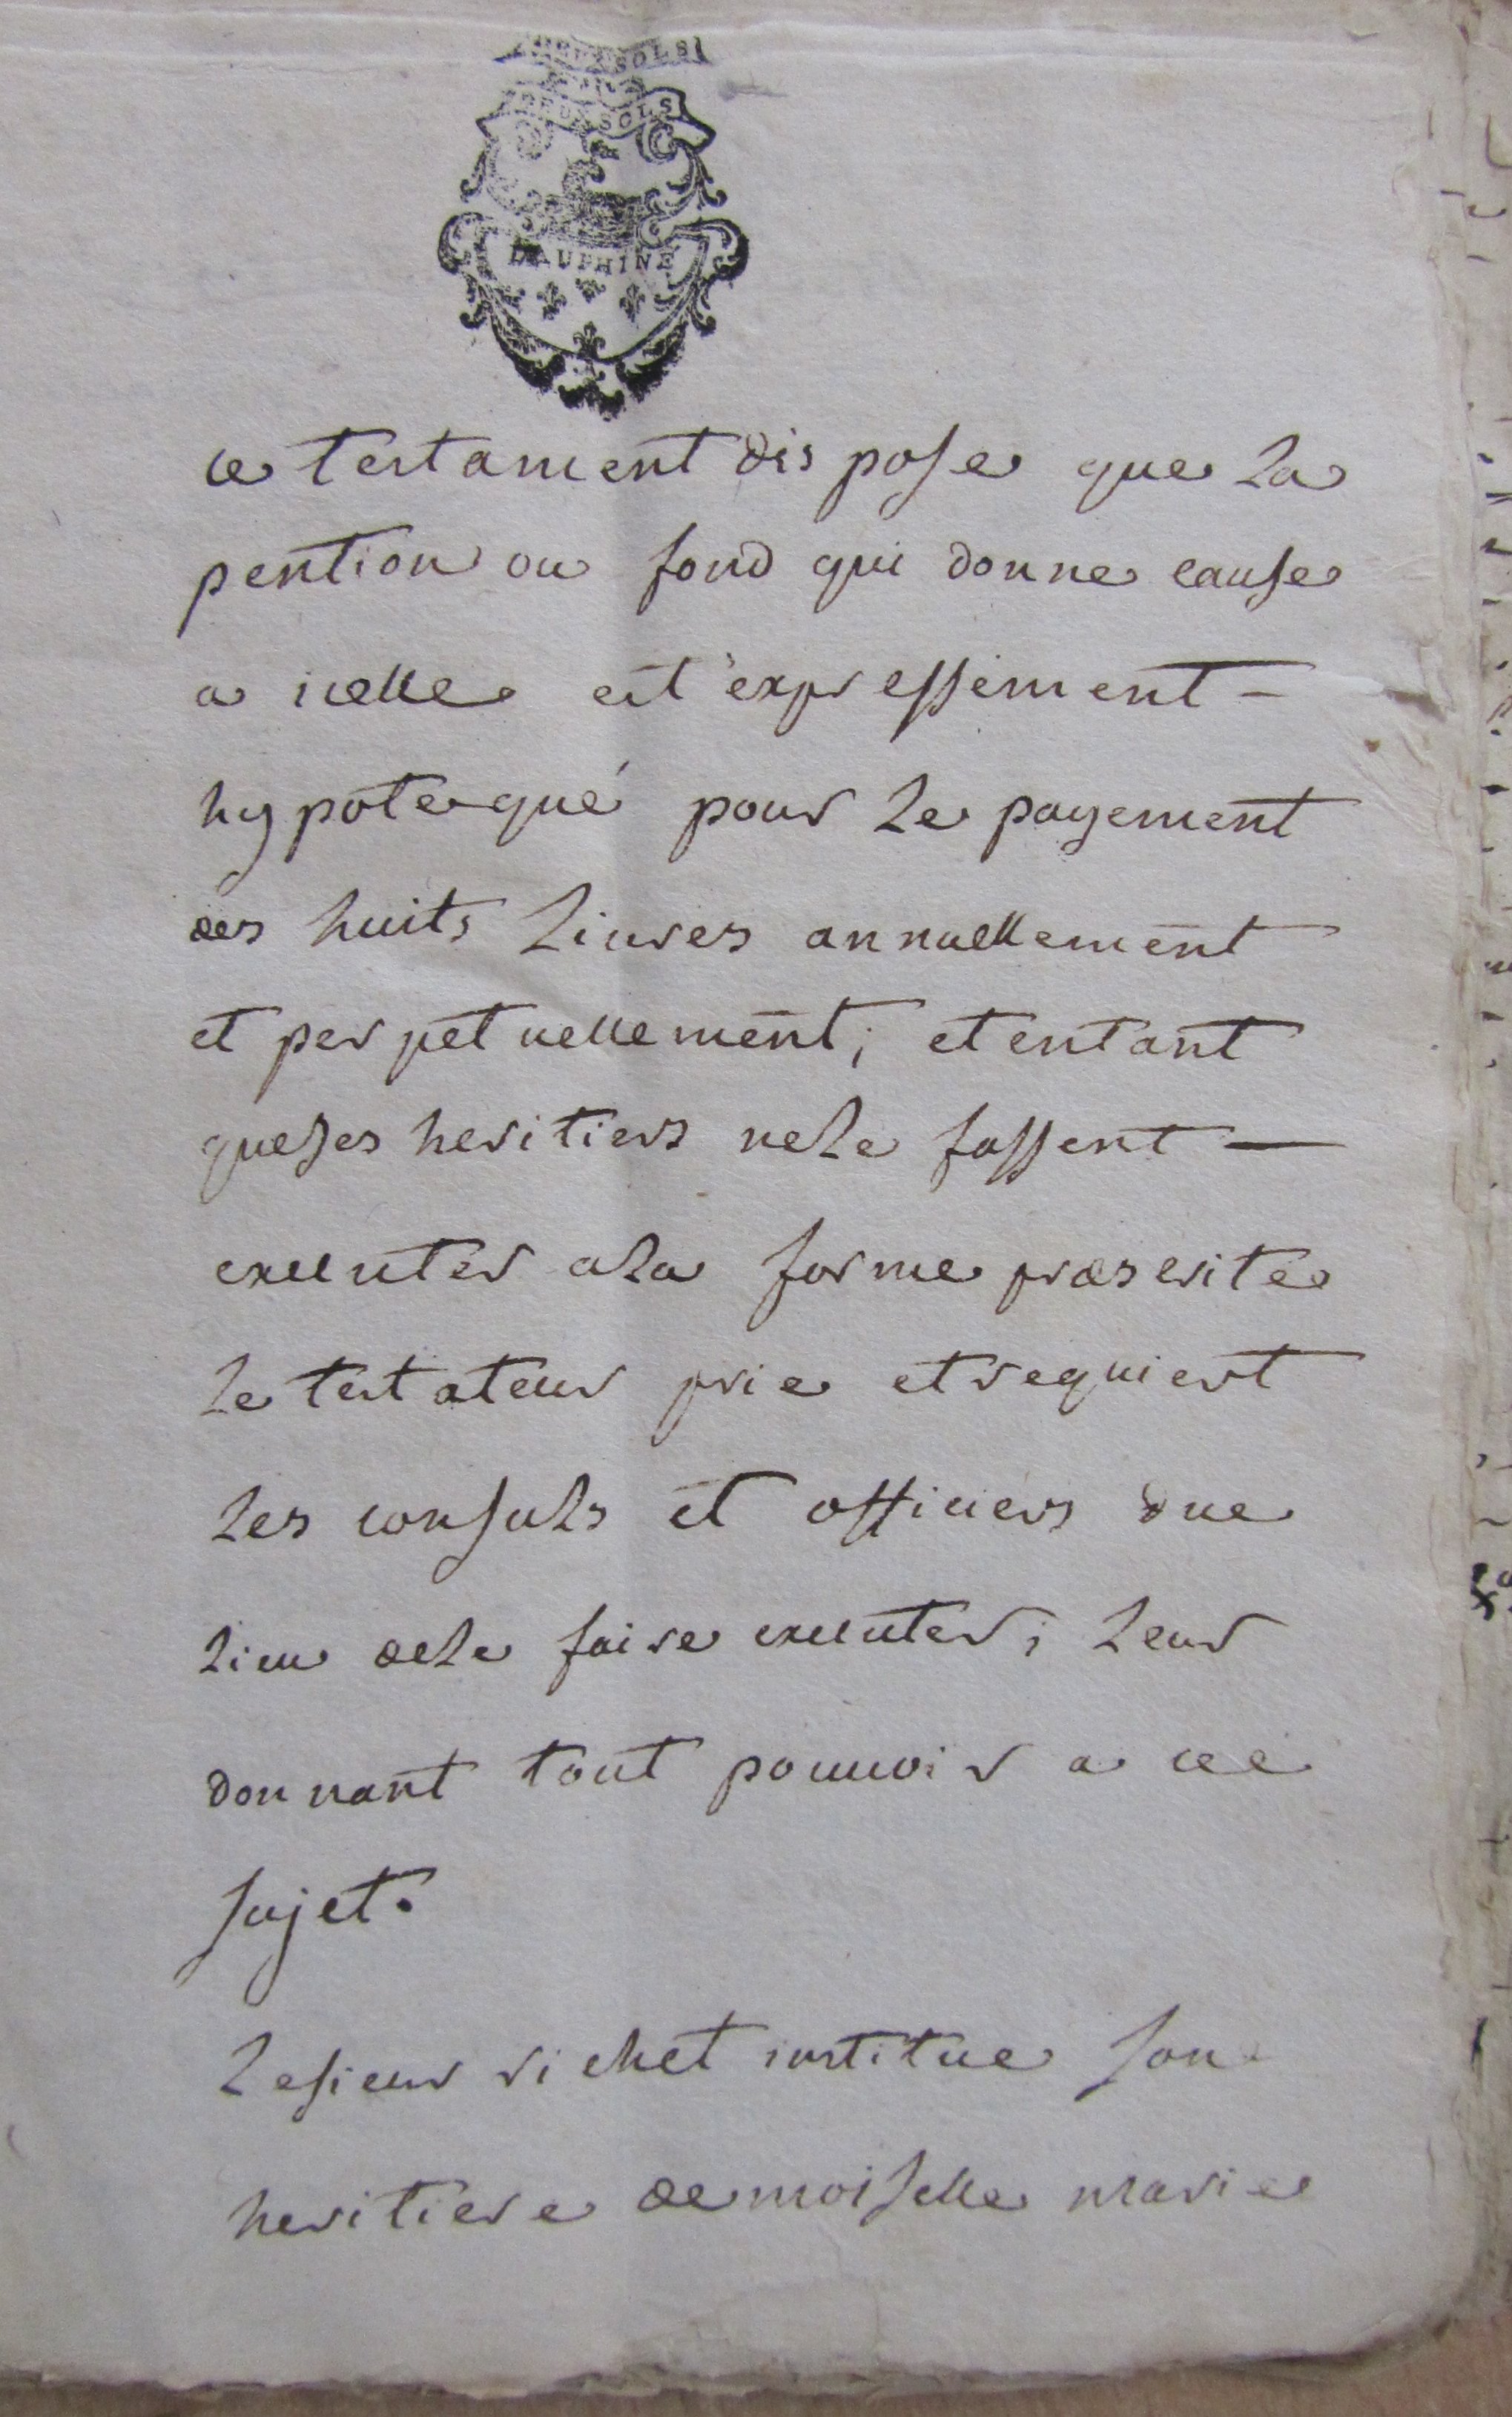 DEUX SOLS
DEUX SOLS
DAUPHINE
ce testament dispose que la
pention ou fond qui donne cause
a icelle est expressement -
hypotequé pour le payement
des huits livres annuellement
et perpetuellement; et entant
que ses heritiers ne le fassent -
executer a la forme prescrite
le testateur prie et requiert
les consuls et officiers due
lieu de le faire executer; leur
donnant tout pouuoir a ce
sujet.
le sieur richet institue son
heritiere demoiselle marie